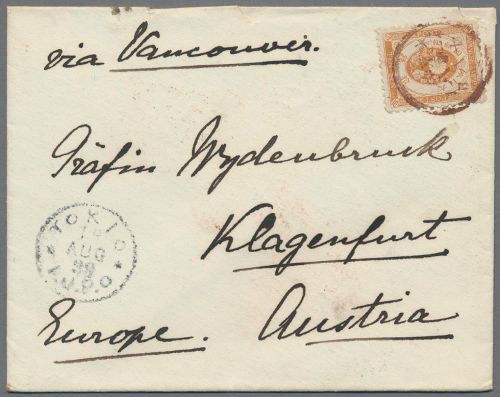 via Vancouver.
Gräfin Wydenbruck
Klagenfurt
Austria
Europe.
TOKIO
AUG
I.J.P.O